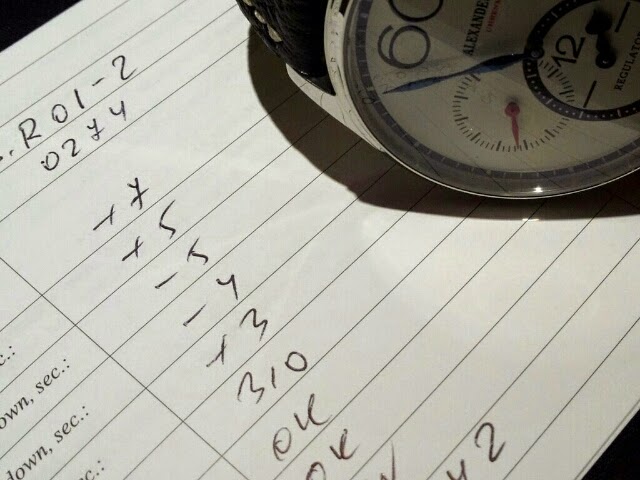 R01-2
0274
+7
+5
-5
-4
+3
310
OK
OK
42
sec.:
own, sec.:
down, sec.:
sec.:
60
ALEXANDE
12
REGULATO